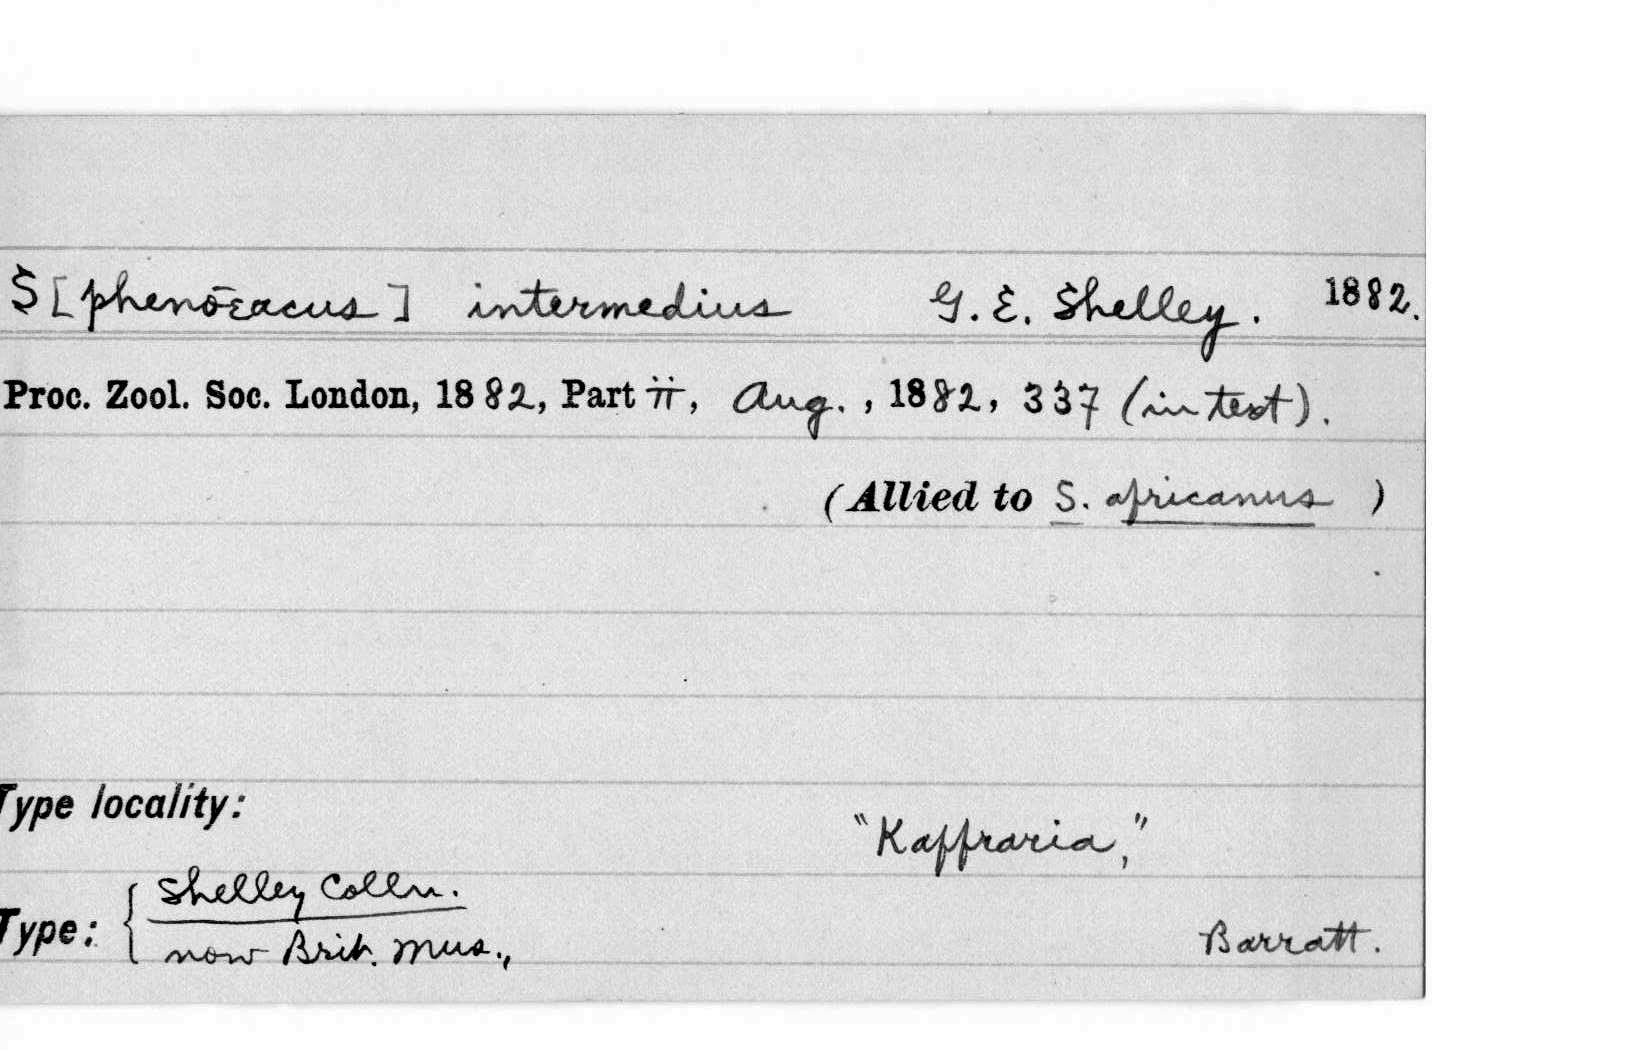 S[phenoeacus] intermedius G. E. Shelley. 1882.
Proc. Zool. Soc. London, 1882, Part ii, Aug., 1882, 337 (in text).
(Allied to S. africanus )
Type locality:
"Kaffraria,"
Shelley Colln.
Type: { now Brit. Mus.,
Barratt.